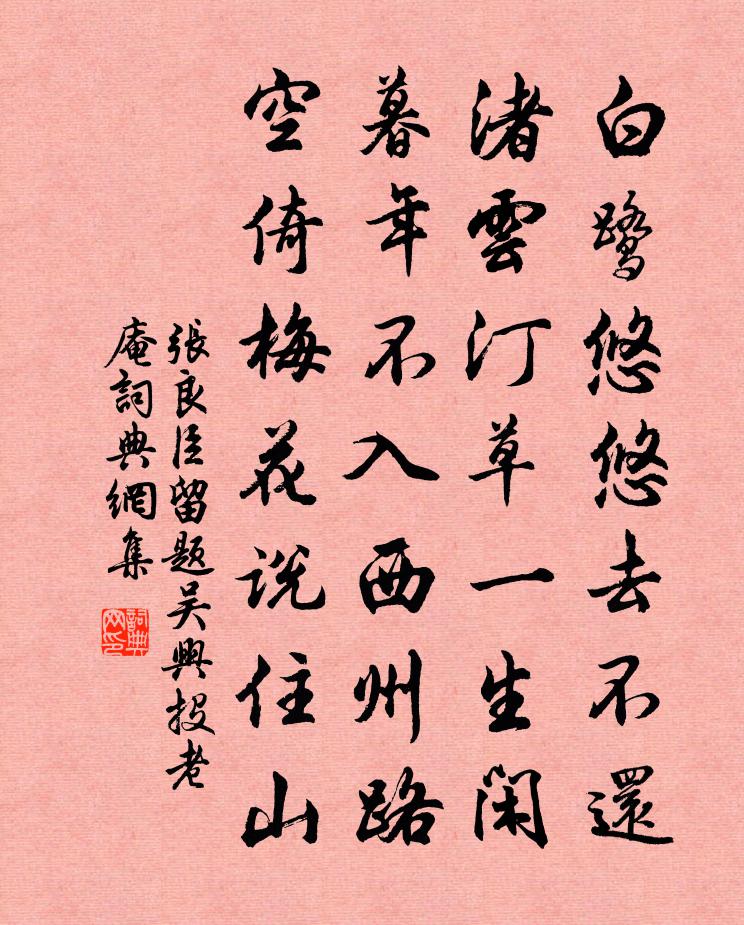 白鹭悠悠去不還
渚雲汀草一生閑
暮年不入西州路
空倚梅花説住山
張良臣留題吴興投老
庵詞典網集
詞典網印